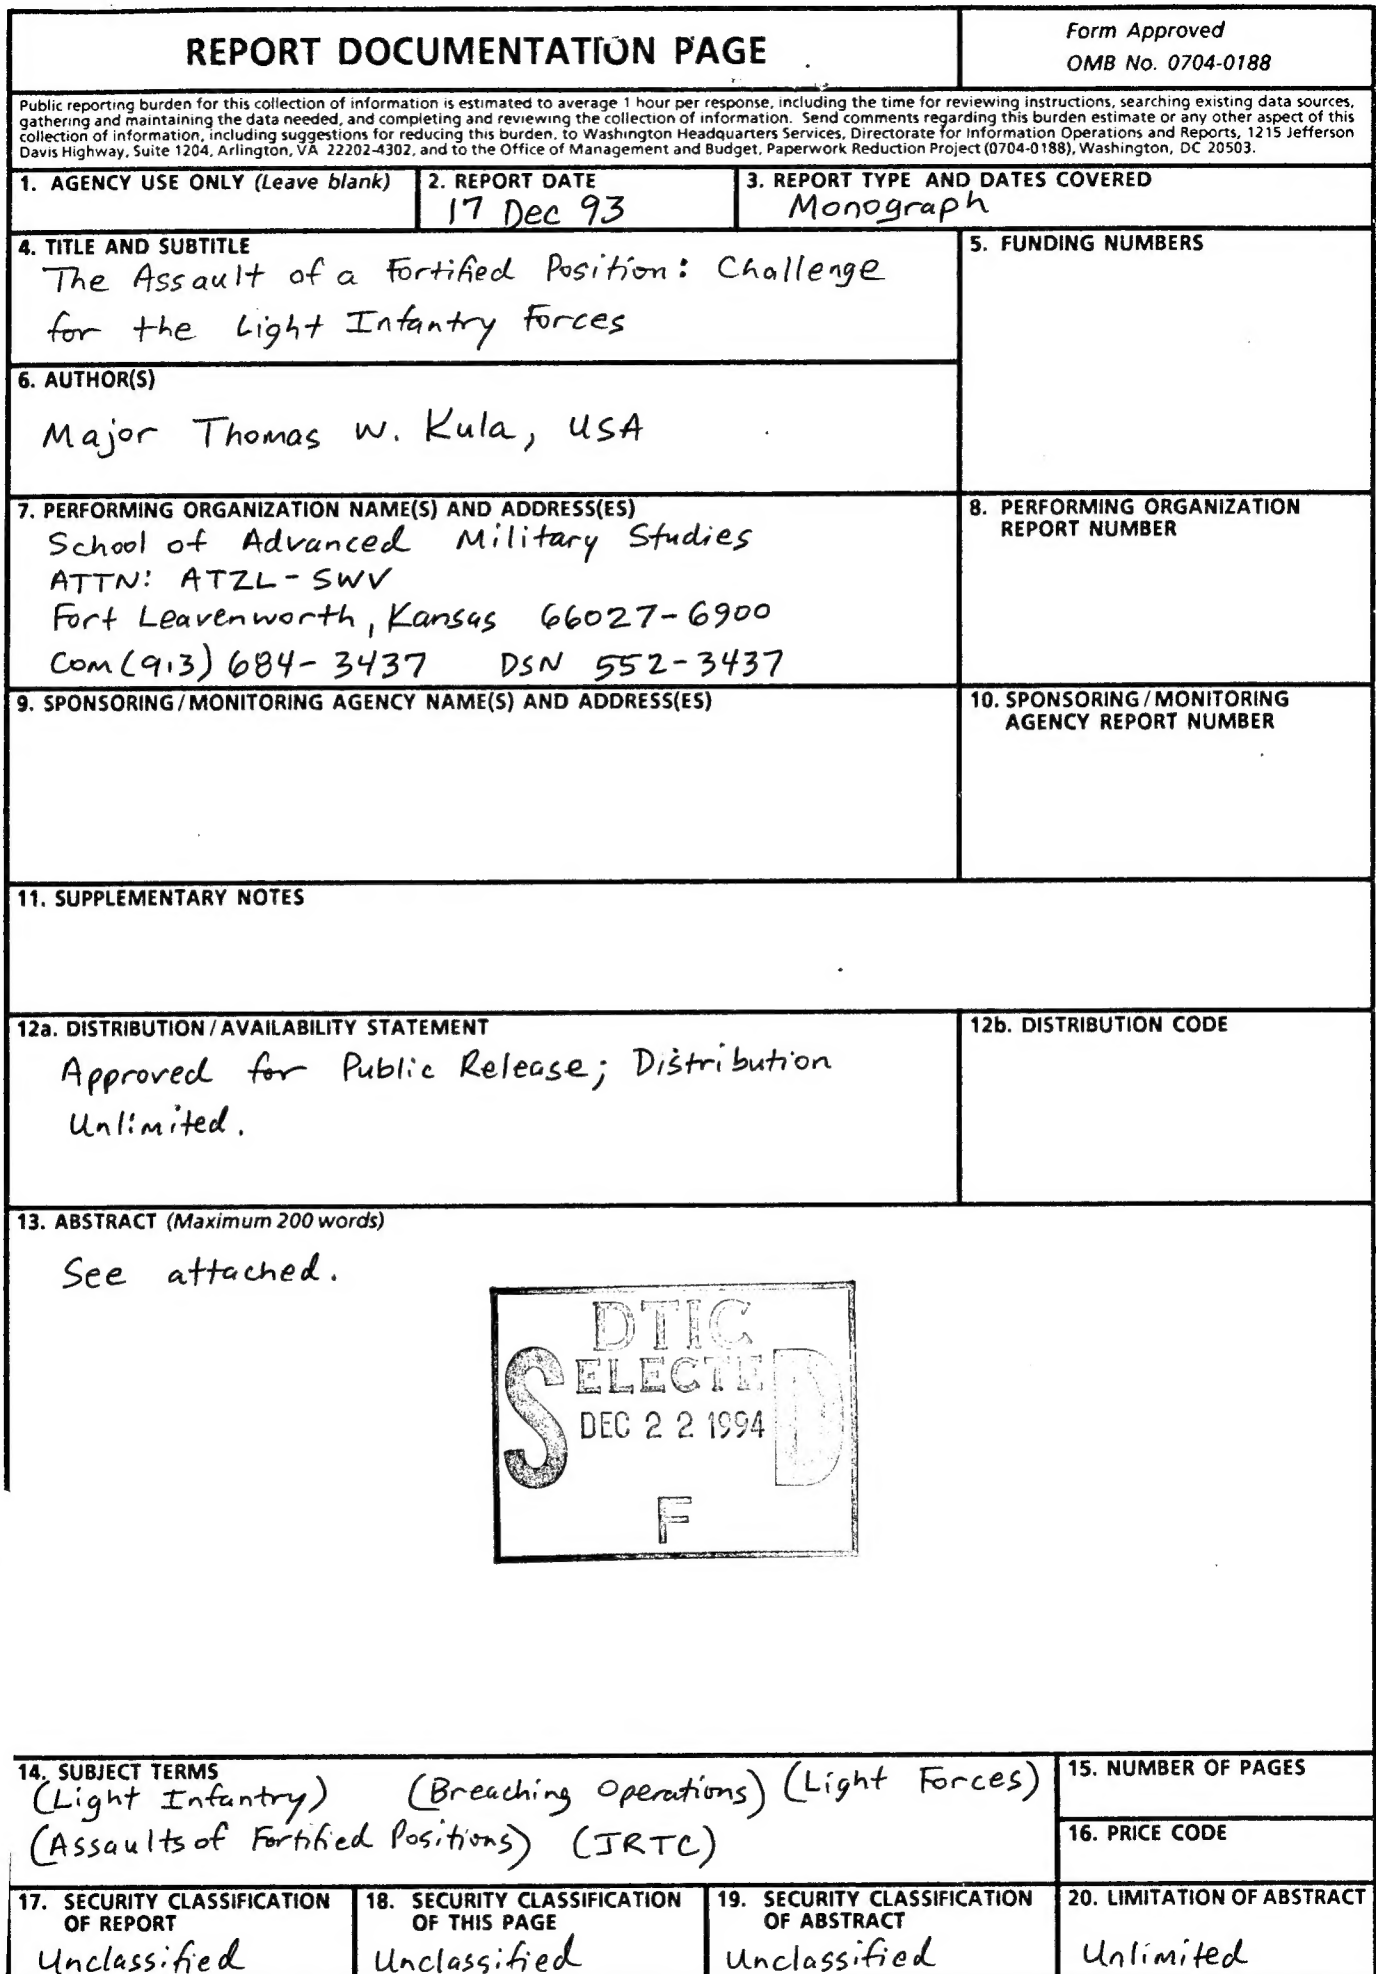 REPORT DOCUMENTATION PAGE
Form Approved
OMB No. 0704-0188
Public reporting burden for this collection of information is estimated to average 1 hour per response, including the time for reviewing instructions, searching existing data sources,
gathering and maintaining the data needed, and completing and reviewing the collection of information. Send comments regarding this burden estimate or any other aspect of this
collection of information, including suggestions for reducing this burden, to Washington Headquarters Services, Directorate for Information Operations and Reports, 1215 Jefferson
Davis Highway, Suite 1204, Arlington, VA 22202-4302, and to the Office of Management and Budget, Paperwork Reduction Project (0704-0188), Washington, DC 20503.
1. AGENCY USE ONLY (Leave blank)
2. REPORT DATE
17 Dec 93
3. REPORT TYPE AND DATES COVERED
Monograph
4. TITLE AND SUBTITLE
The Assault of a Fortified Position: Challenge
for the Light Infantry Forces
5. FUNDING NUMBERS
6. AUTHOR(S)
Major Thomas W. Kula, USA
7. PERFORMING ORGANIZATION NAME(S) AND ADDRESS(ES)
School of Advanced Military Studies
ATTN: ATZL-SWV
Fort Leavenworth, Kansas 66027-6900
Com (913) 684-3437 DSN 552-3437
8. PERFORMING ORGANIZATION
REPORT NUMBER
9. SPONSORING/MONITORING AGENCY NAME(S) AND ADDRESS(ES)
10. SPONSORING/MONITORING
AGENCY REPORT NUMBER
11. SUPPLEMENTARY NOTES
12a. DISTRIBUTION/AVAILABILITY STATEMENT
Approved for Public Release; Distribution
Unlimited.
12b. DISTRIBUTION CODE
13. ABSTRACT (Maximum 200 words)
See attached.
DTIC
S ELECTE D
DEC 22 1994
F
14. SUBJECT TERMS
(Light Infantry) (Breaching Operations) (Light Forces)
(Assaults of Fortified Positions) (JRTC)
15. NUMBER OF PAGES
16. PRICE CODE
17. SECURITY CLASSIFICATION
OF REPORT
Unclassified
18. SECURITY CLASSIFICATION
OF THIS PAGE
Unclassified
19. SECURITY CLASSIFICATION
OF ABSTRACT
Unclassified
20. LIMITATION OF ABSTRACT
Unlimited